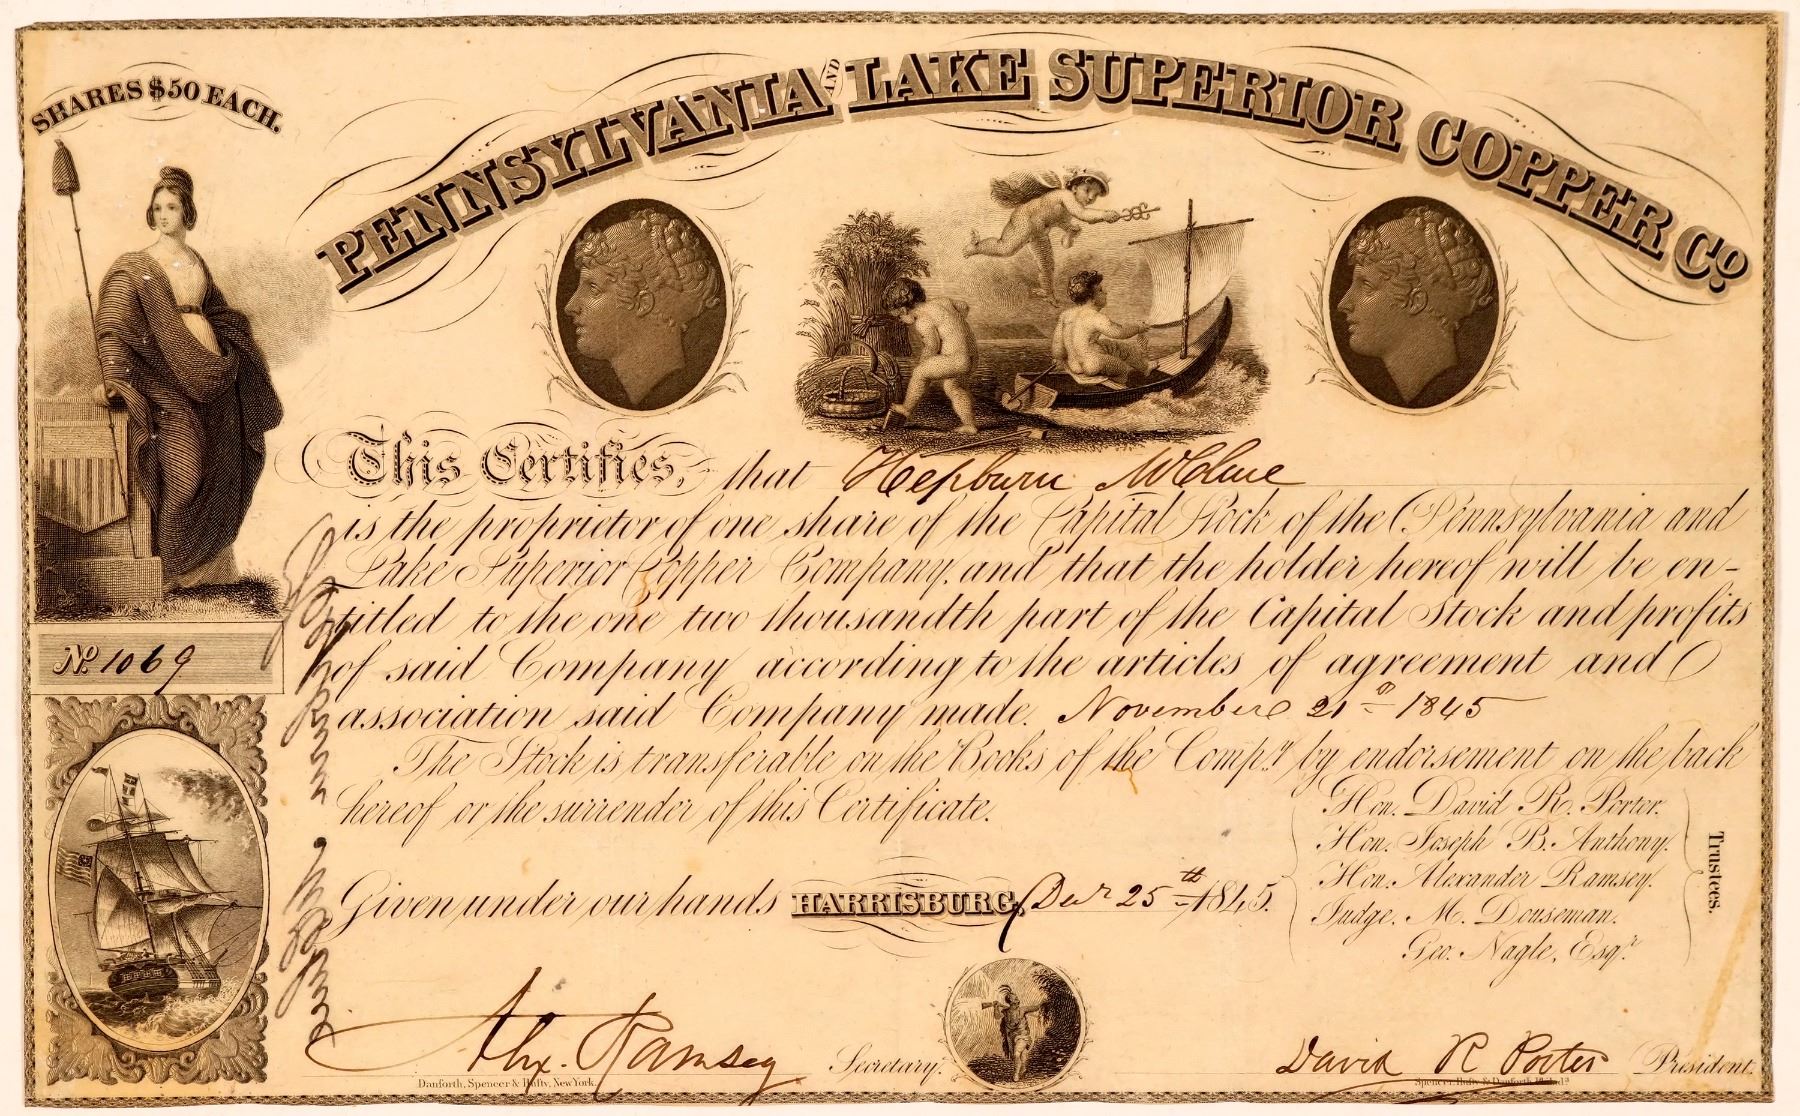 SHARES $50 EACH.
PENNSYLVANIA AND LAKE SUPERIOR COPPER Co.
This Certifies, that Hepburn McClure
is the proprietor of one share of the Capital Stock of the Pennsylvania and
Lake Superior Copper Company, and that the holder hereof will be en-
titled to the one two thousandth part of the Capital Stock and profits
No. 1069
of said Company according to the articles of agreement and
association said Company made. November 21st 1845
The Stock is transferable on the Books of the Compy. by endorsement on the back
hereof or the surrender of this Certificate.
Hon. David R. Porter.
Hon. Joseph B. Anthony.
Hon. Alexander Ramsey.
Judge. M. Douseman.
Geo. Nagle, Esqr.
Trustees.
Given under our hands HARRISBURG, Decr 25th 1845.
Hepburn McClure
Alex. Ramsey Secretary.
David R Porter President.
Danforth, Spencer & Hufty, New York.
Spencer, Hufty & Danforth, Philada.